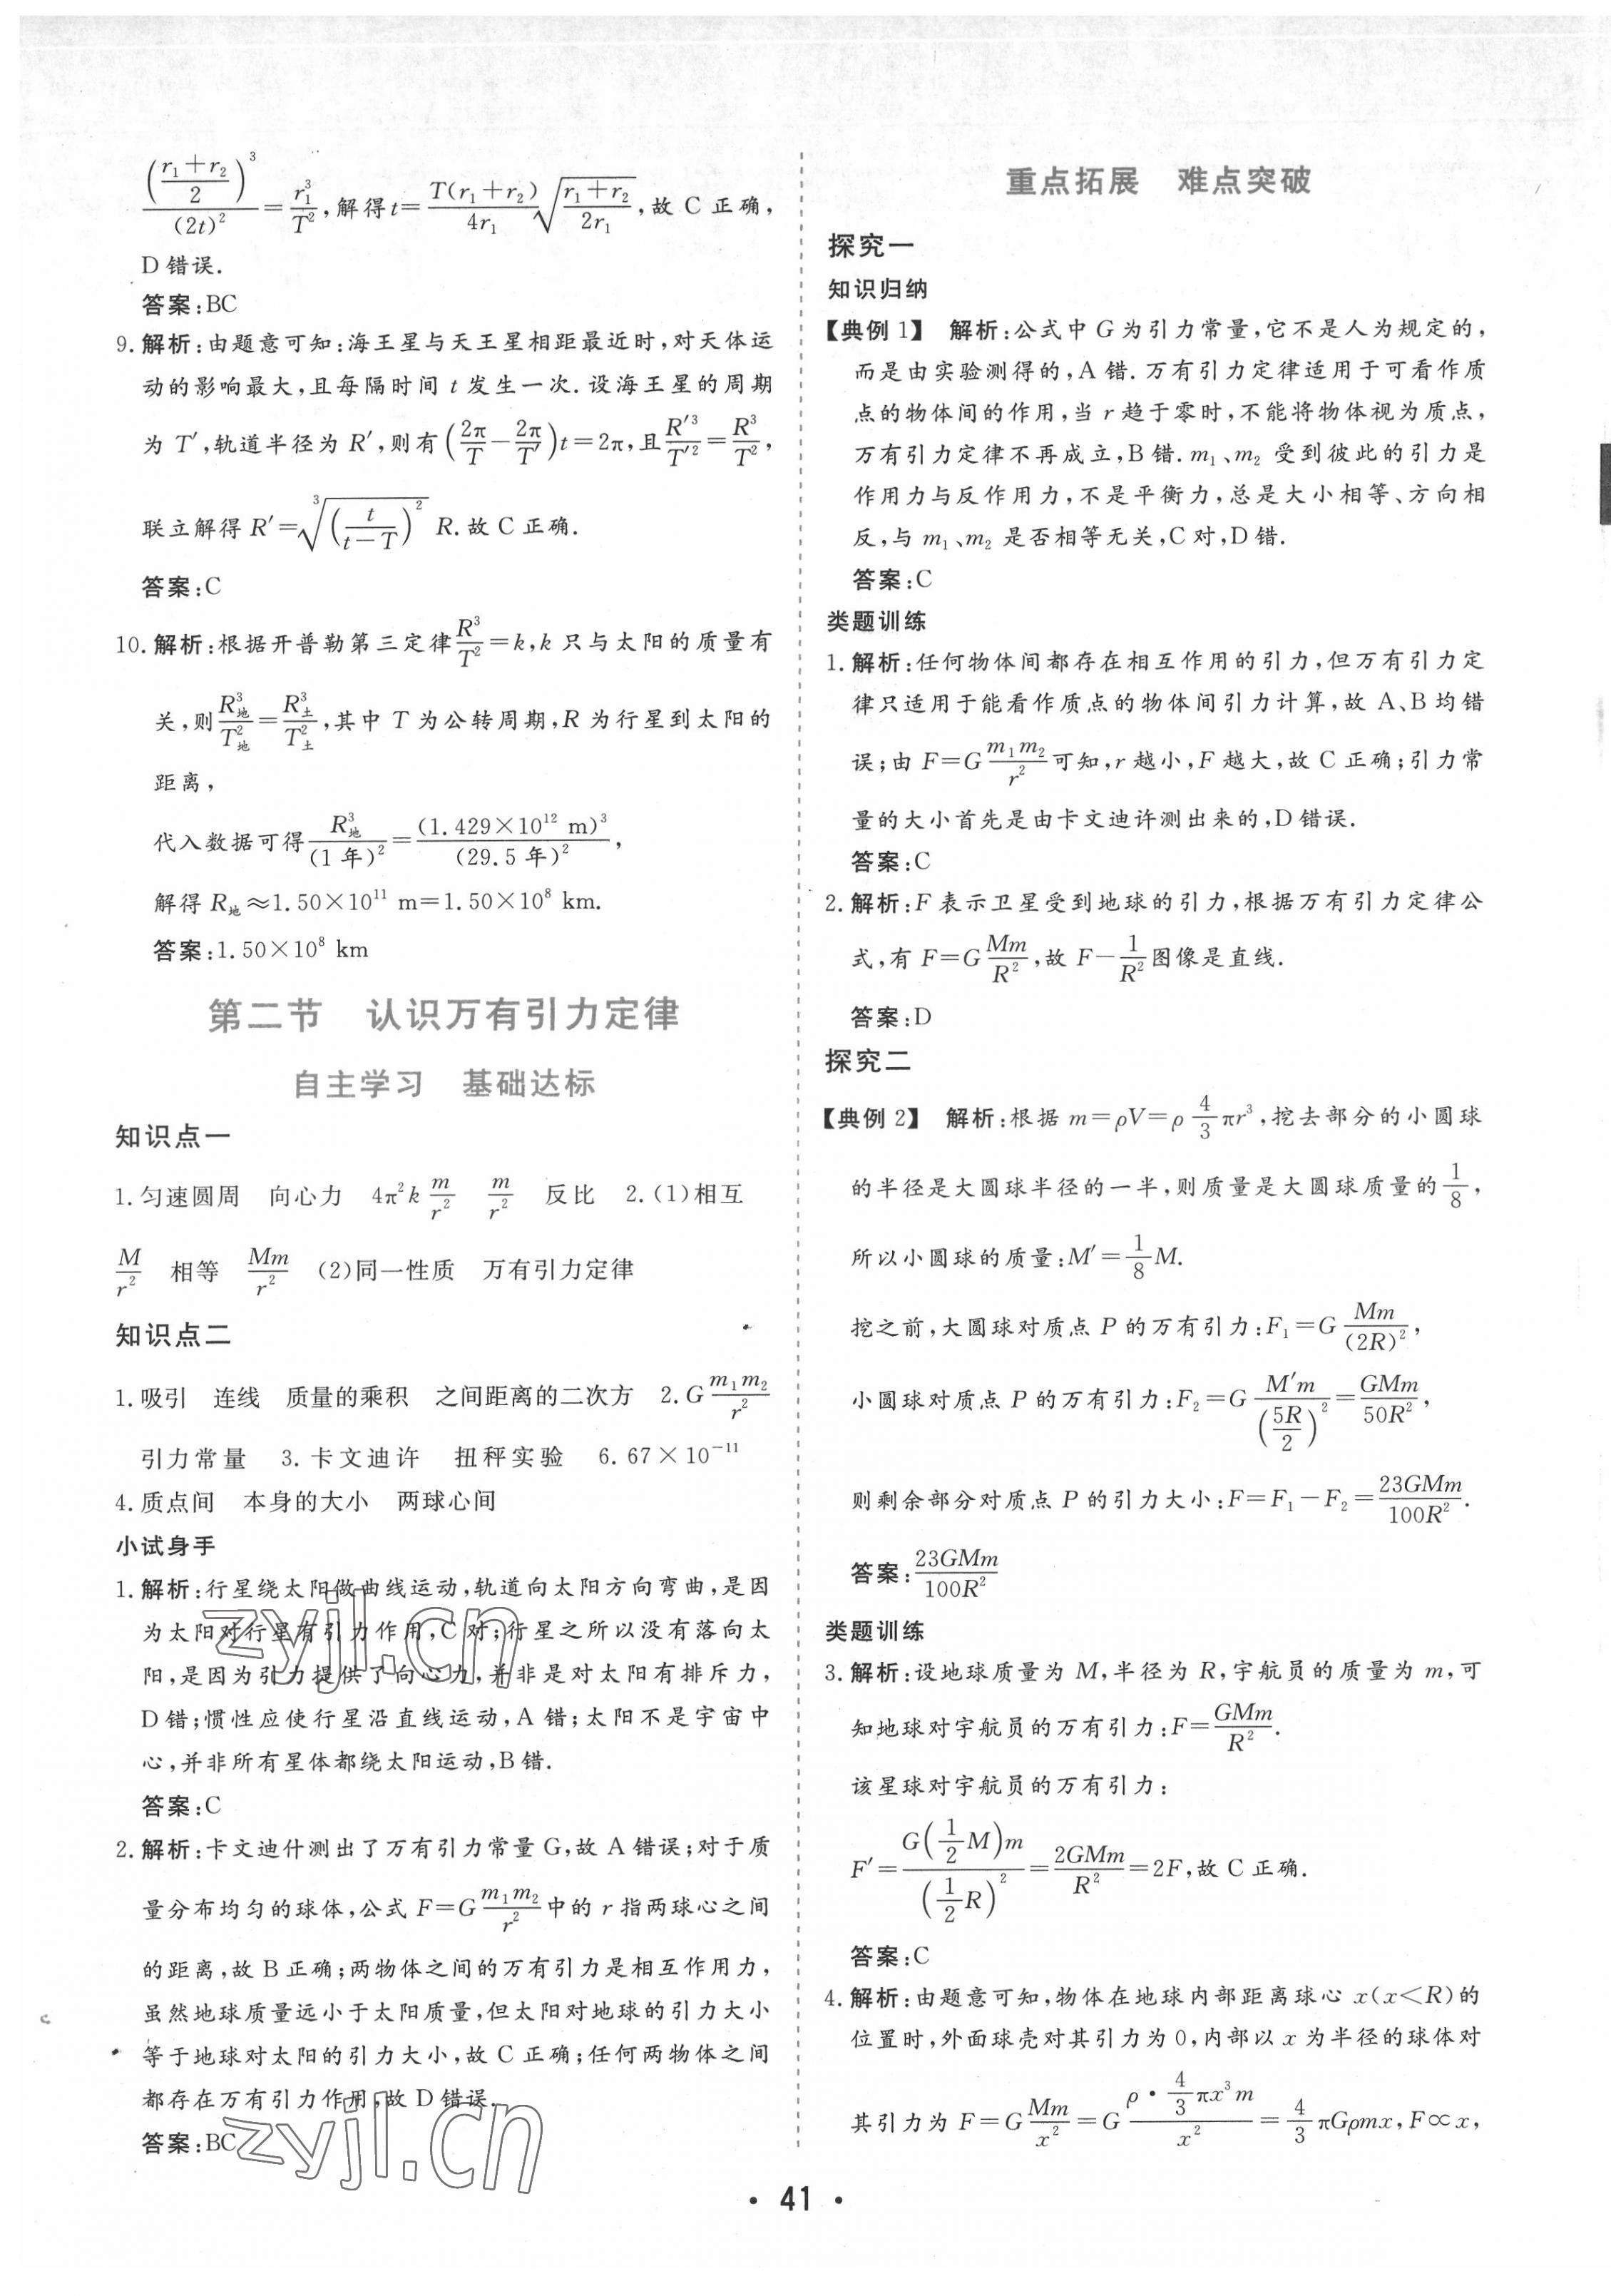 $\frac{\left(\frac{r_1+r_2}{2}\right)^3}{(2t)^2}=\frac{r_1^3}{T^2}$,解得$t=\frac{T(r_1+r_2)}{4r_1}\sqrt{\frac{r_1+r_2}{2r_1}}$,故 C 正确,
D 错误.
答案:BC
9.解析:由题意可知:海王星与天王星相距最近时,对天体运
动的影响最大,且每隔时间 t 发生一次.设海王星的周期
为 T′,轨道半径为 R′,则有$\left(\frac{2π}{T}-\frac{2π}{T′}\right)t=2π$,且$\frac{R′^3}{T′^2}=\frac{R^3}{T^2}$,
联立解得 $R′=\sqrt[3]{\left(\frac{t}{t-T}\right)^2}R$.故 C 正确.
答案:C
10.解析:根据开普勒第三定律$\frac{R^3}{T^2}=k$,k 只与太阳的质量有
关,则$\frac{R_地^3}{T_地^2}=\frac{R_土^3}{T_土^2}$,其中 T 为公转周期,R 为行星到太阳的
距离,
代入数据可得$\frac{R_地^3}{(1 年)^2}=\frac{(1.429×10^{12} m)^3}{(29.5 年)^2}$,
解得 $R_地$≈1.50×10¹¹ m=1.50×10⁸ km.
答案:1.50×10⁸ km
第二节 认识万有引力定律
自主学习 基础达标
知识点一
1.匀速圆周 向心力 $4π^2k\frac{m}{r^2}$ $\frac{m}{r^2}$ 反比 2.(1)相互
$\frac{M}{r^2}$ 相等 $\frac{Mm}{r^2}$ (2)同一性质 万有引力定律
知识点二
1.吸引 连线 质量的乘积 之间距离的二次方 2.$G\frac{m_1m_2}{r^2}$
引力常量 3.卡文迪许 扭秤实验 6.67×10⁻¹¹
4.质点间 本身的大小 两球心间
小试身手
1.解析:行星绕太阳做曲线运动,轨道向太阳方向弯曲,是因
为太阳对行星有引力作用,C 对;行星之所以没有落向太
阳,是因为引力提供了向心力,并非是对太阳有排斥力,
D 错;惯性应使行星沿直线运动,A 错;太阳不是宇宙中
心,并非所有星体都绕太阳运动,B 错.
答案:C
2.解析:卡文迪什测出了万有引力常量 G,故 A 错误;对于质
量分布均匀的球体,公式 $F=G\frac{m_1m_2}{r^2}$中的 r 指两球心之间
的距离,故 B 正确;两物体之间的万有引力是相互作用力,
虽然地球质量远小于太阳质量,但太阳对地球的引力大小
等于地球对太阳的引力大小,故 C 正确;任何两物体之间
都存在万有引力作用,故 D 错误.
答案:BC
重点拓展 难点突破
探究一
知识归纳
【典例 1】 解析:公式中 G 为引力常量,它不是人为规定的,
而是由实验测得的,A 错.万有引力定律适用于可看作质
点的物体间的作用,当 r 趋于零时,不能将物体视为质点,
万有引力定律不再成立,B 错.m₁、m₂ 受到彼此的引力是
作用力与反作用力,不是平衡力,总是大小相等、方向相
反,与 m₁、m₂ 是否相等无关,C 对,D 错.
答案:C
类题训练
1.解析:任何物体间都存在相互作用的引力,但万有引力定
律只适用于能看作质点的物体间引力计算,故 A、B 均错
误;由 $F=G\frac{m_1m_2}{r^2}$可知,r 越小,F 越大,故 C 正确;引力常
量的大小首先是由卡文迪许测出来的,D 错误.
答案:C
2.解析:F 表示卫星受到地球的引力,根据万有引力定律公
式,有 $F=G\frac{Mm}{R^2}$,故 $F-\frac{1}{R^2}$图像是直线.
答案:D
探究二
【典例 2】 解析:根据 $m=ρV=ρ\frac{4}{3}πr^3$,挖去部分的小圆球
的半径是大圆球半径的一半,则质量是大圆球质量的$\frac{1}{8}$,
所以小圆球的质量:$M′=\frac{1}{8}M$.
挖之前,大圆球对质点 P 的万有引力:$F_1=G\frac{Mm}{(2R)^2}$,
小圆球对质点 P 的万有引力:$F_2=G\frac{M′m}{\left(\frac{5R}{2}\right)^2}=\frac{GMm}{50R^2}$,
则剩余部分对质点 P 的引力大小:$F=F_1-F_2=\frac{23GMm}{100R^2}$.
答案:$\frac{23GMm}{100R^2}$
类题训练
3.解析:设地球质量为 M,半径为 R,宇航员的质量为 m,可
知地球对宇航员的万有引力:$F=\frac{GMm}{R^2}$.
该星球对宇航员的万有引力:
$F′=\frac{G\left(\frac{1}{2}M\right)m}{\left(\frac{1}{2}R\right)^2}=\frac{2GMm}{R^2}=2F$,故 C 正确.
答案:C
4.解析:由题意可知,物体在地球内部距离球心 x(x<R)的
位置时,外面球壳对其引力为 0,内部以 x 为半径的球体对
其引力为 $F=G\frac{Mm}{x^2}=G\frac{ρ·\frac{4}{3}πx^3m}{x^2}=\frac{4}{3}πGρmx$,F∝x,
· 41 ·
zyjl.cn
zyjl.cn